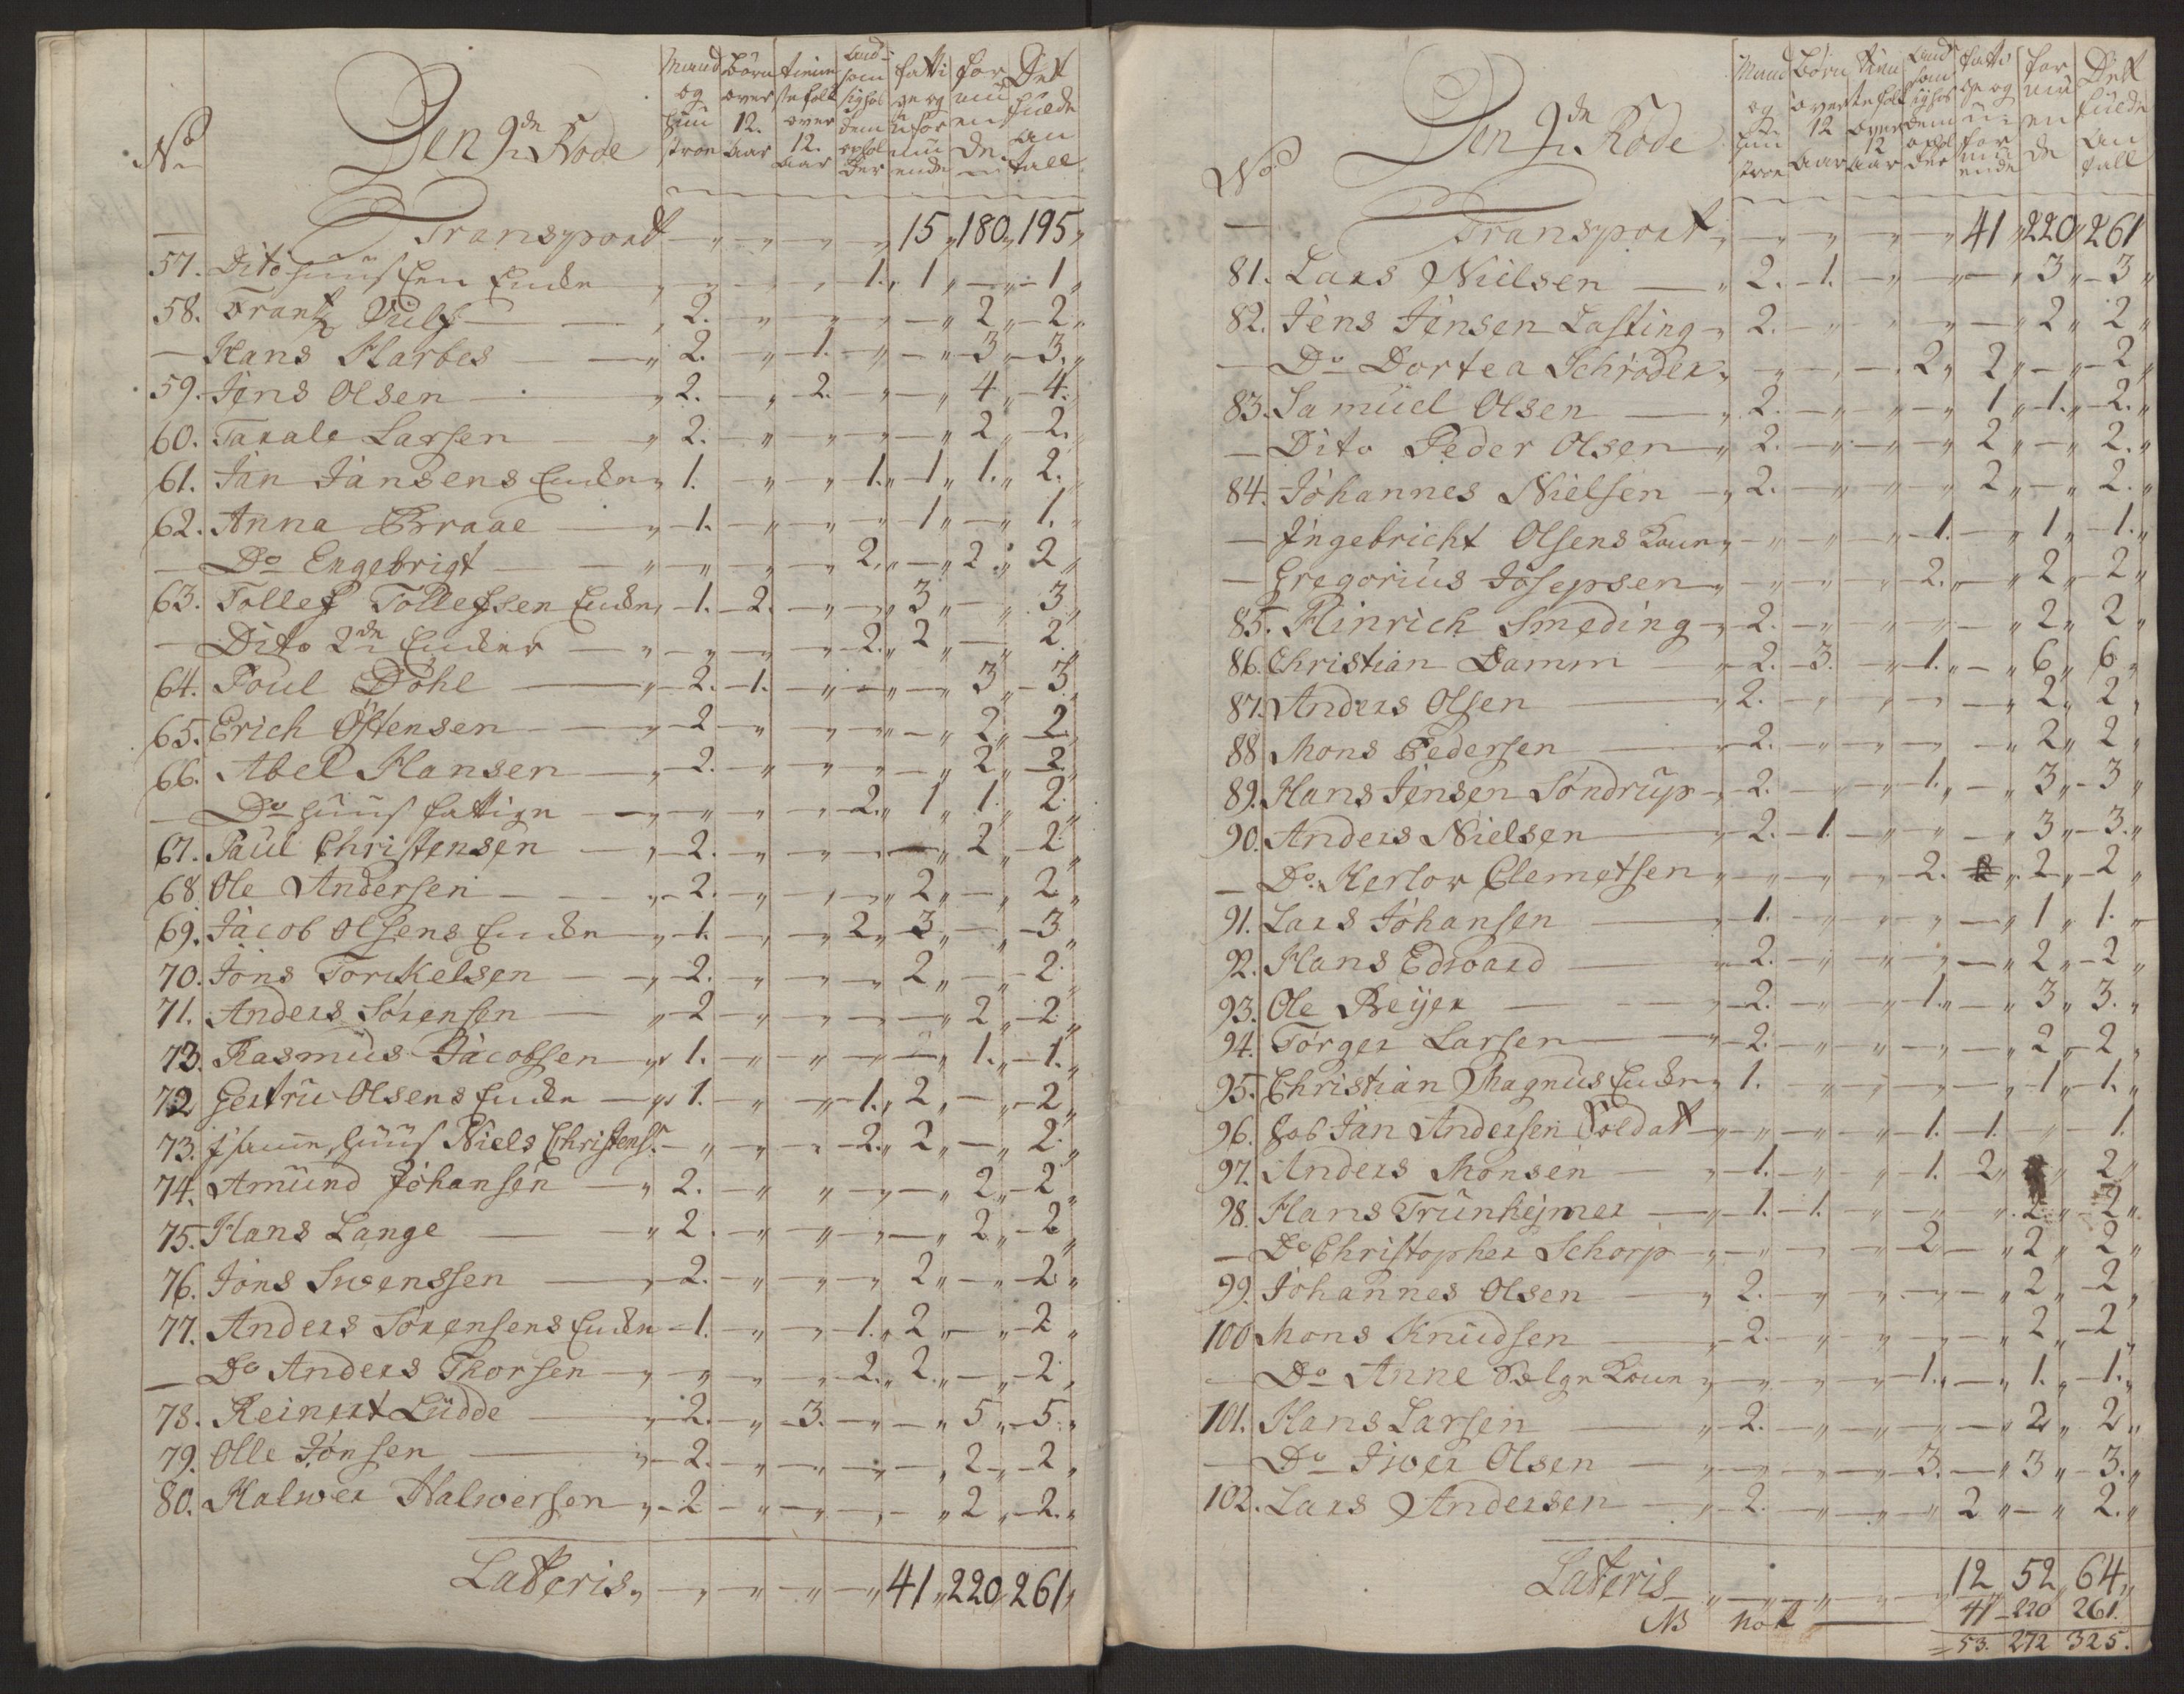 No
Den 2de Rode
Mand og hustroe
Børn over 12. aar
tienistefolk over 12. aar
and- som sig hol dem ophol der
fatti ge og uformuende
formuende
Det fulde antall
Transport 15 180 195
57. Dito huus en Encke 1. 1 1
58. Frantz Vulf 2. 2 2
Hans Harbes 2. 1. 3 3.
59. Jens Olsen 2. 2. 4 4.
60. Tarale Larsen 2. 2 2.
61. Jan Jansens Encke 1. 1. 1 1. 2.
62. Anna Braae 1. 1 1.
Do Engebrigt 2. 2. 2
63. Tollef Tollefsen Encke 1. 2. 3 3.
Dito 2de Encker 2. 2 2.
64. Poul Döhl 2. 1. 3 3.
65. Erich Östensen 2 2 2.
66. Abel Hansen 2. 2 2.
Do huus fattige 2. 1 1. 2.
67. Paul Christensen 2. 2 2.
68. Ole Andersen 2. 2 2.
69. Jacob Olsens Encke 1. 2 3 3
70. Jöns Torckelsen 2. 2 2.
71. Anders Sörensen 2 2 2.
73. Rasmus Jacobsen 1. 1. 1.
72 Gertru Olsens Encke 1. 1. 2 2
73. huus Niels Christens. 2. 2 2.
74. Amund Johansen 2. 2 2
75. Hans Lange 2. 2 2
76. Jöns Swenssen 2. 2 2.
77. Anders Sörensens Encke 1. 1. 2 2
Do Anders Thorsen 2. 2. 2.
78. Reinert Lüdde 2. 3. 5 5.
79. Olle Jönsen 2. 2 2
80. Halwer Halwersen 2 2 2.
Lateris 41 220 261
No
Den 2de Rode
Mand og hustroe
Børn over 12 aar
tienistefolk over 12 aar
and som sig hol dem ophol der
fattige og uformuende
formuende
Det fulde antall
Transport 41 220 261
81. Lars Nielsen 2. 1. 3 3
82. Jens Jensen Lasting 2. 2 2
Do Dortea Schröder 2 2 2
83. Samuel Olsen 2. 1 1. 2.
Dito Peder Olsen 2. 2 2.
84. Johannes Nielsen 2. 2 2.
Ingebricht Olsens Kone 1. 1 1.
Gregorius Josepsen 2. 2 2
85. Hinrich Smeding 2. 2 2
86. Christian Damm 2. 3. 1. 6 6
87. Anders Olsen 2. 2 2
88 Mons Pedersen 2. 2 2
89. Hans Jensen Söndrup 2. 1. 3 3
90. Anders Nielsen 2. 1. 3 3.
Do. Kerlow Clemetsen 2. 2 2
91. Lars Johansen 1. 1 1.
92. Hans Edward 2. 2 2
93. Ole Beijer 2. 1. 3 3.
94. Torger Larsen 2. 2 2
95. Christian Magnus Encke 1. 1 1.
96. Hos Jan Andersen Soldat 1. 1. 1.
97. Anders Monsen 1. 1. 2 2
98. Hans Trunhejmer 1. 1. 2. 2
Do Christopher Schorp 2 2 2
99. Johannes Olsen 2. 2 2
100 Mons Knudsen 2. 2 2
Do Anne Kone 1. 1. 1.
101. Hans Larsen 2. 2 2
Do Iwer Olsen 3. 3 3.
102. Lars Andersen 2. 2 2.
Lateris 12 52 64
NB not 41 220 261.
53. 272 325.